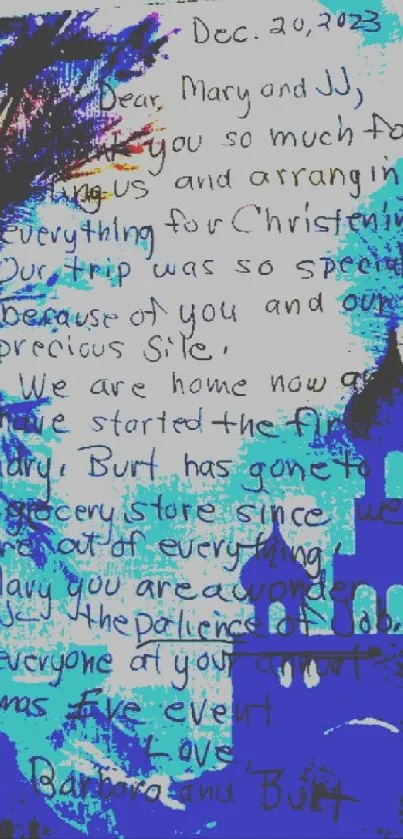 Dec. 20, 2023
Dear, Mary and JJ,
you so much fo
ting us and arrangin
everything for Christenin
Our trip was so special
because of you and our
precious Sile.
We are home now a
have started the fir
dry. Burt has gone to
grocery store since we
re out of everything.
Mary you are a wonder
the patience of Job.
everyone at your annual
mas Eve event
Love,
Barbara and Burt